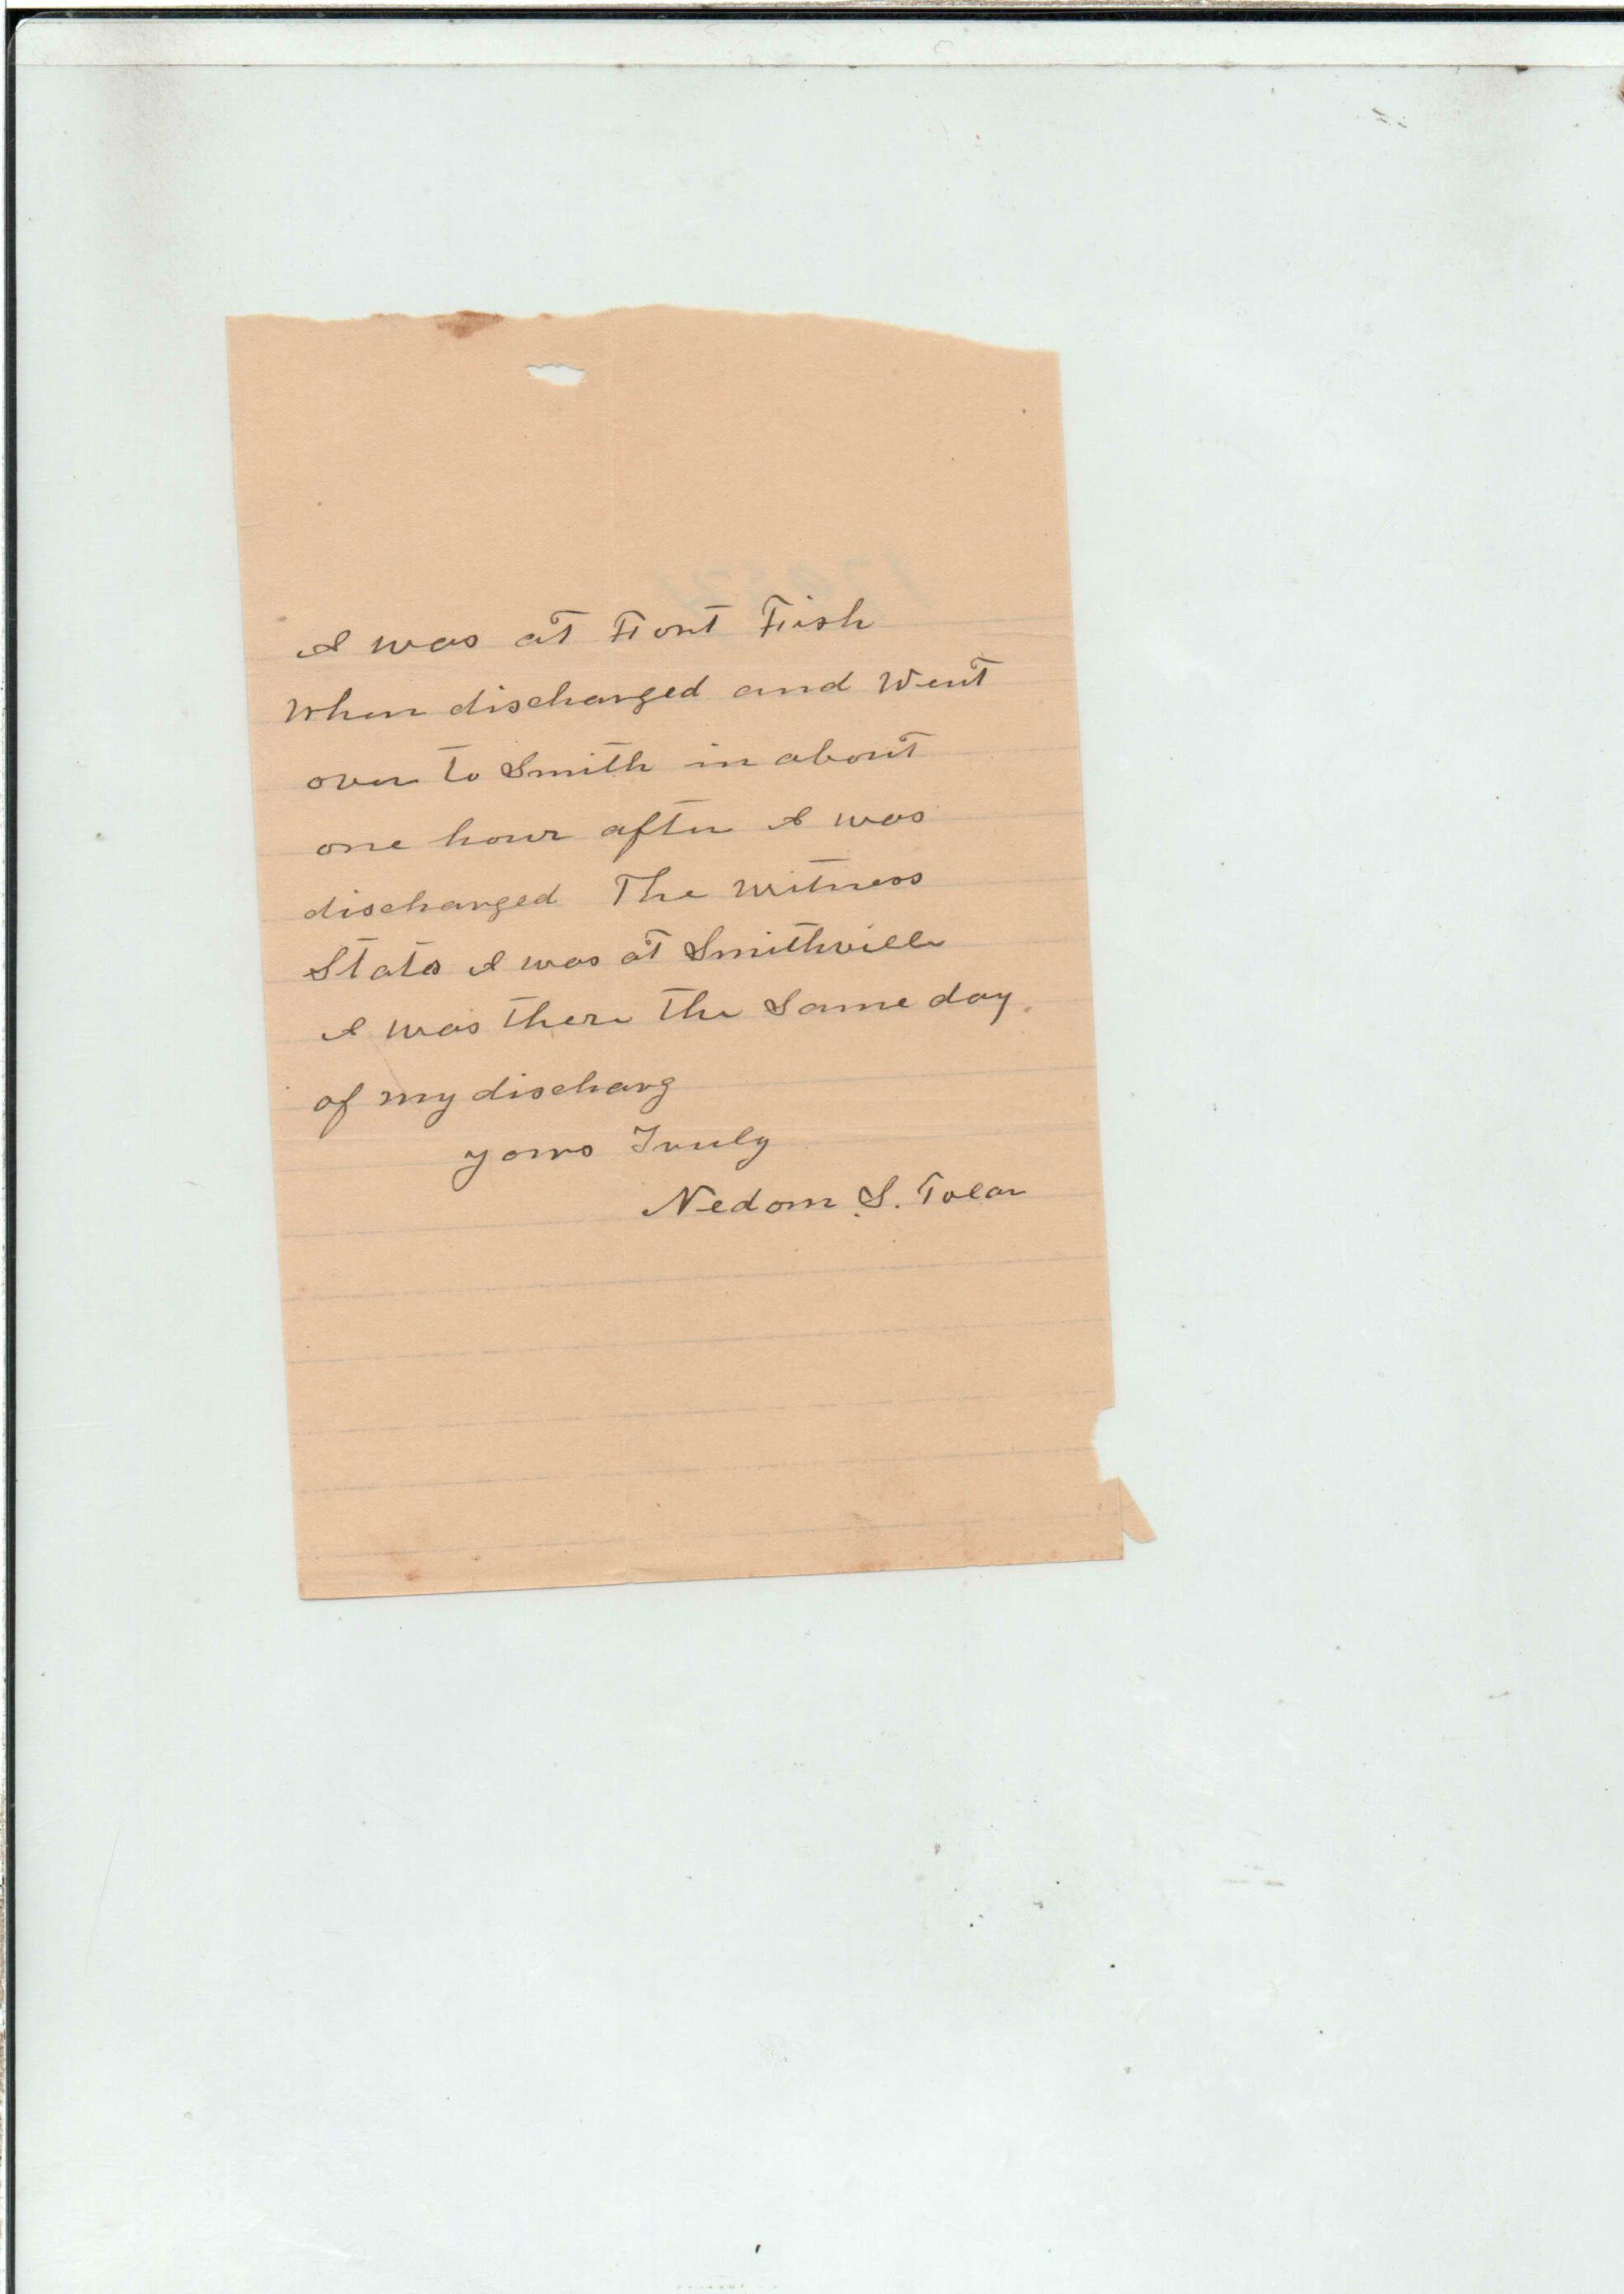 I was at Fort Fish
When discharged and Went
over to Smith in about
one hour after I was
discharged The Witness
States I was at Smithville
I was there the Same day
of my discharg
yours Truly
Nedom S. Tolar